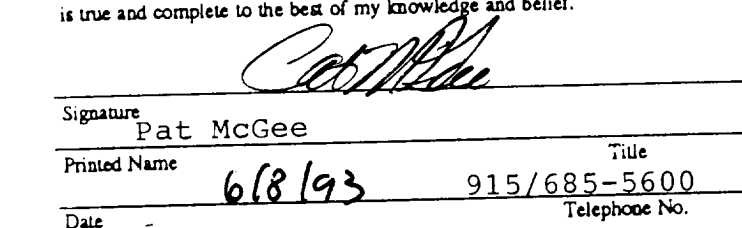 is true and complete to the best of my knowledge and belief.
Signature
Pat McGee
Printed Name Title
6/8/93 915/685-5600
Date Telephone No.